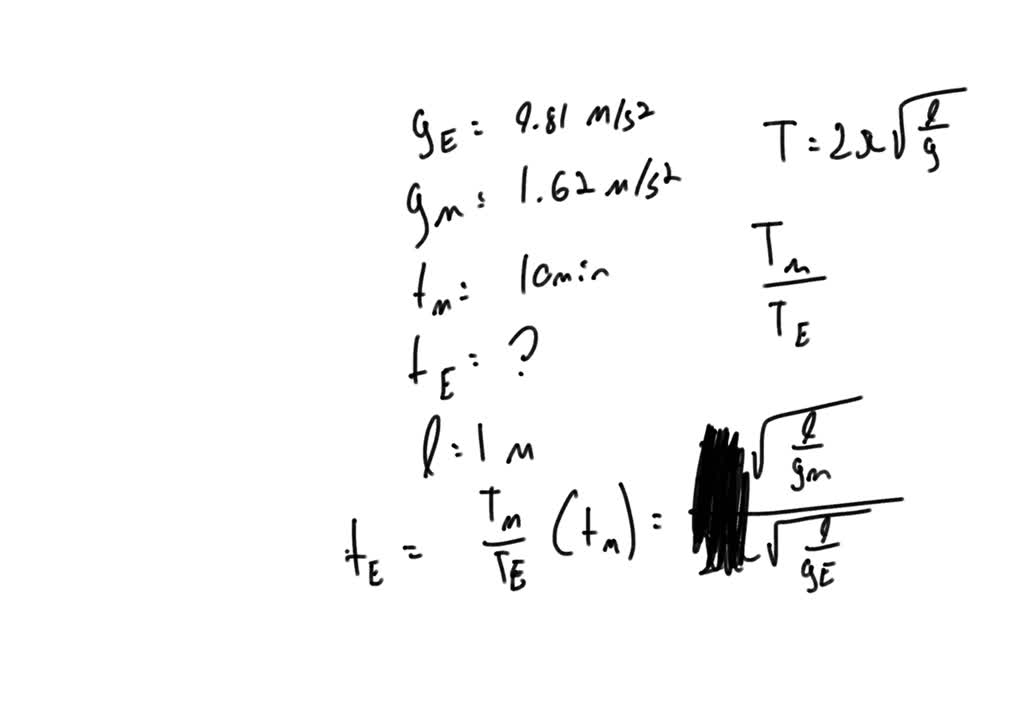 g_E = 9.81 m/s²
g_m = 1.62 m/s²
t_m = 10min
t_E = ?
l = 1 m
T = 2π√(l/g)
T_m / T_E
t_E = T_m/T_E (t_m) = √(l/g_m) / √(l/g_E)